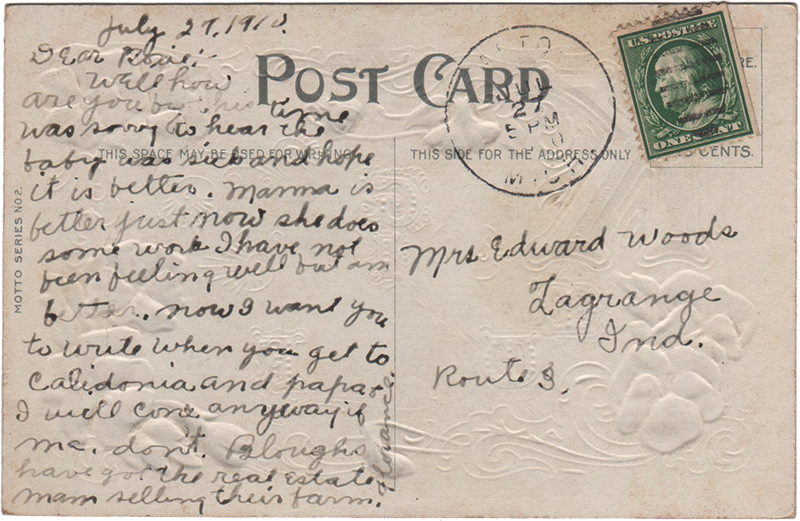 July 27, 1910.
Dear Rosie:-
Well how
are you by this time
was sorry to hear the
baby was sick and hope
it is better. Mamma is
better just now she does
some work I have not
been feeling well but am
better. now I want you
to write when you get to
Calidonia and papa &
I will come anyway if
ma. don't. Bloughs
have got the real estate
mam selling their farm.
Florance.
POST CARD
THIS SPACE MAY BE USED FOR WRITING
THIS SIDE FOR THE ADDRESS ONLY
MOTTO SERIES NO 2.
ALTO
JUL
27
5 PM
MICH
U.S. POSTAGE
ONE CENT
RE.
CENTS.
Mrs Edward Woods
Lagrange
Ind.
Route 3.